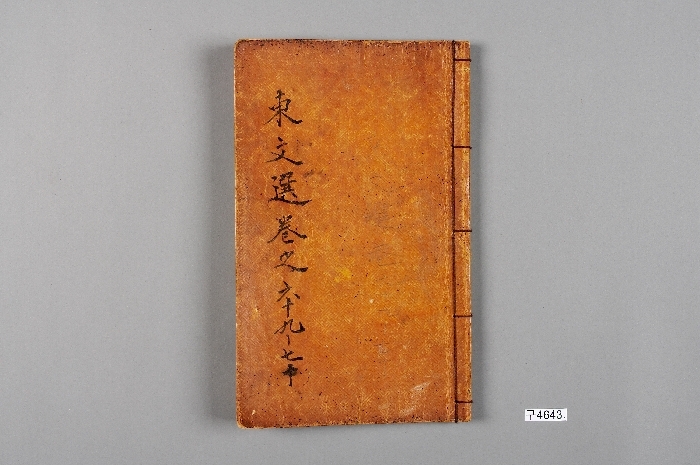 東文選卷之六十九~七十
구4643.